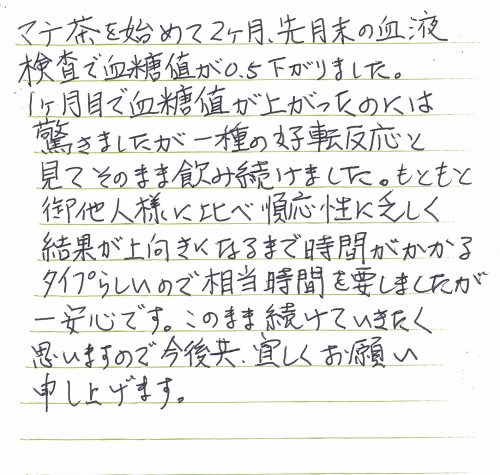 マテ茶を始めて2ヶ月、先月末の血液
検査で血糖値が0.5下がりました。
1ヶ月目で血糖値が上がったのには
驚きましたが一種の好転反応と
見てそのまま飲み続けました。もともと
御他人様に比べ順応性に乏しく
結果が上向きになるまで時間がかかる
タイプらしいので相当時間を要しましたが
一安心です。このまま続けていきたく
思いますので今後共、宜しくお願い
申し上げます。